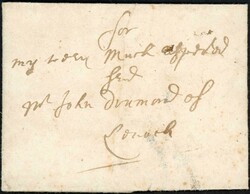 for
my very Much respected
frend
Mr John Drumond of